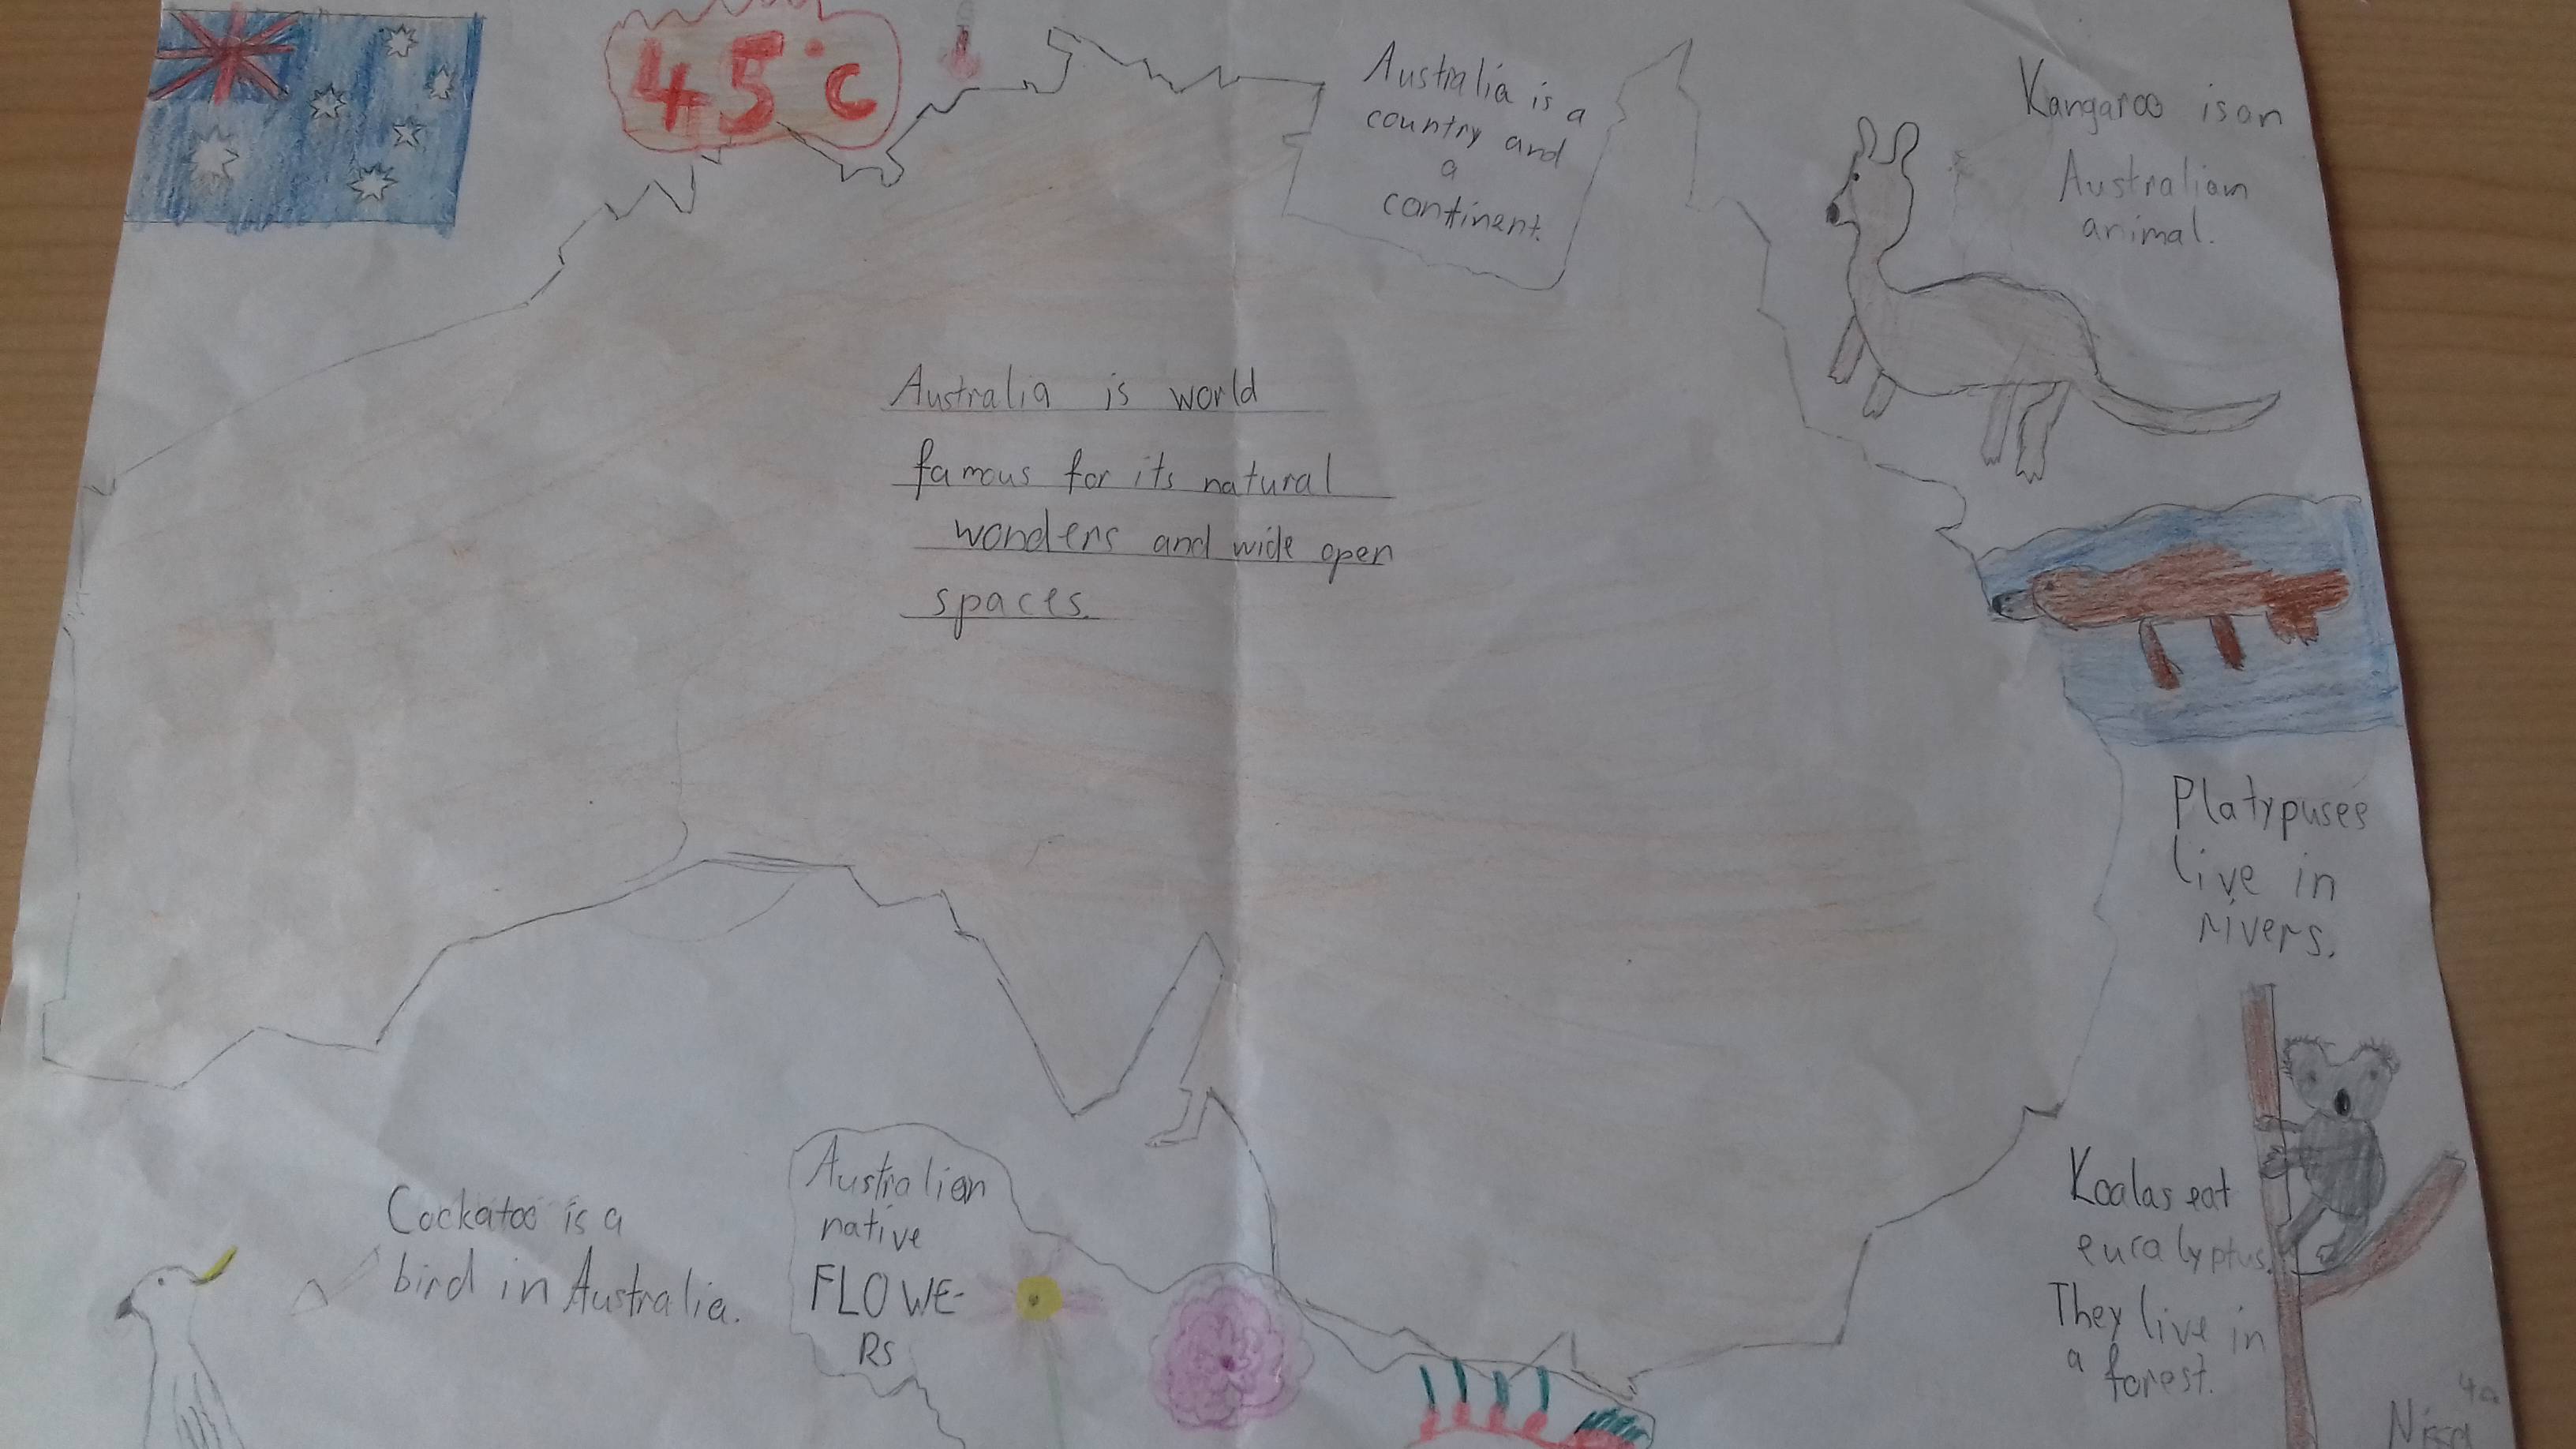 45°C
Australia is a
country and
a
continent.
Kangaroo is an
Australian
animal.
Australia is world
famous for its natural
wonders and wide open
spaces.
Platypuses
live in
rivers.
Koalas eat
eucalyptus.
They live in
a forest.
Cockatoo is a
bird in Australia.
Australian
native
FLOWE-
RS
4a